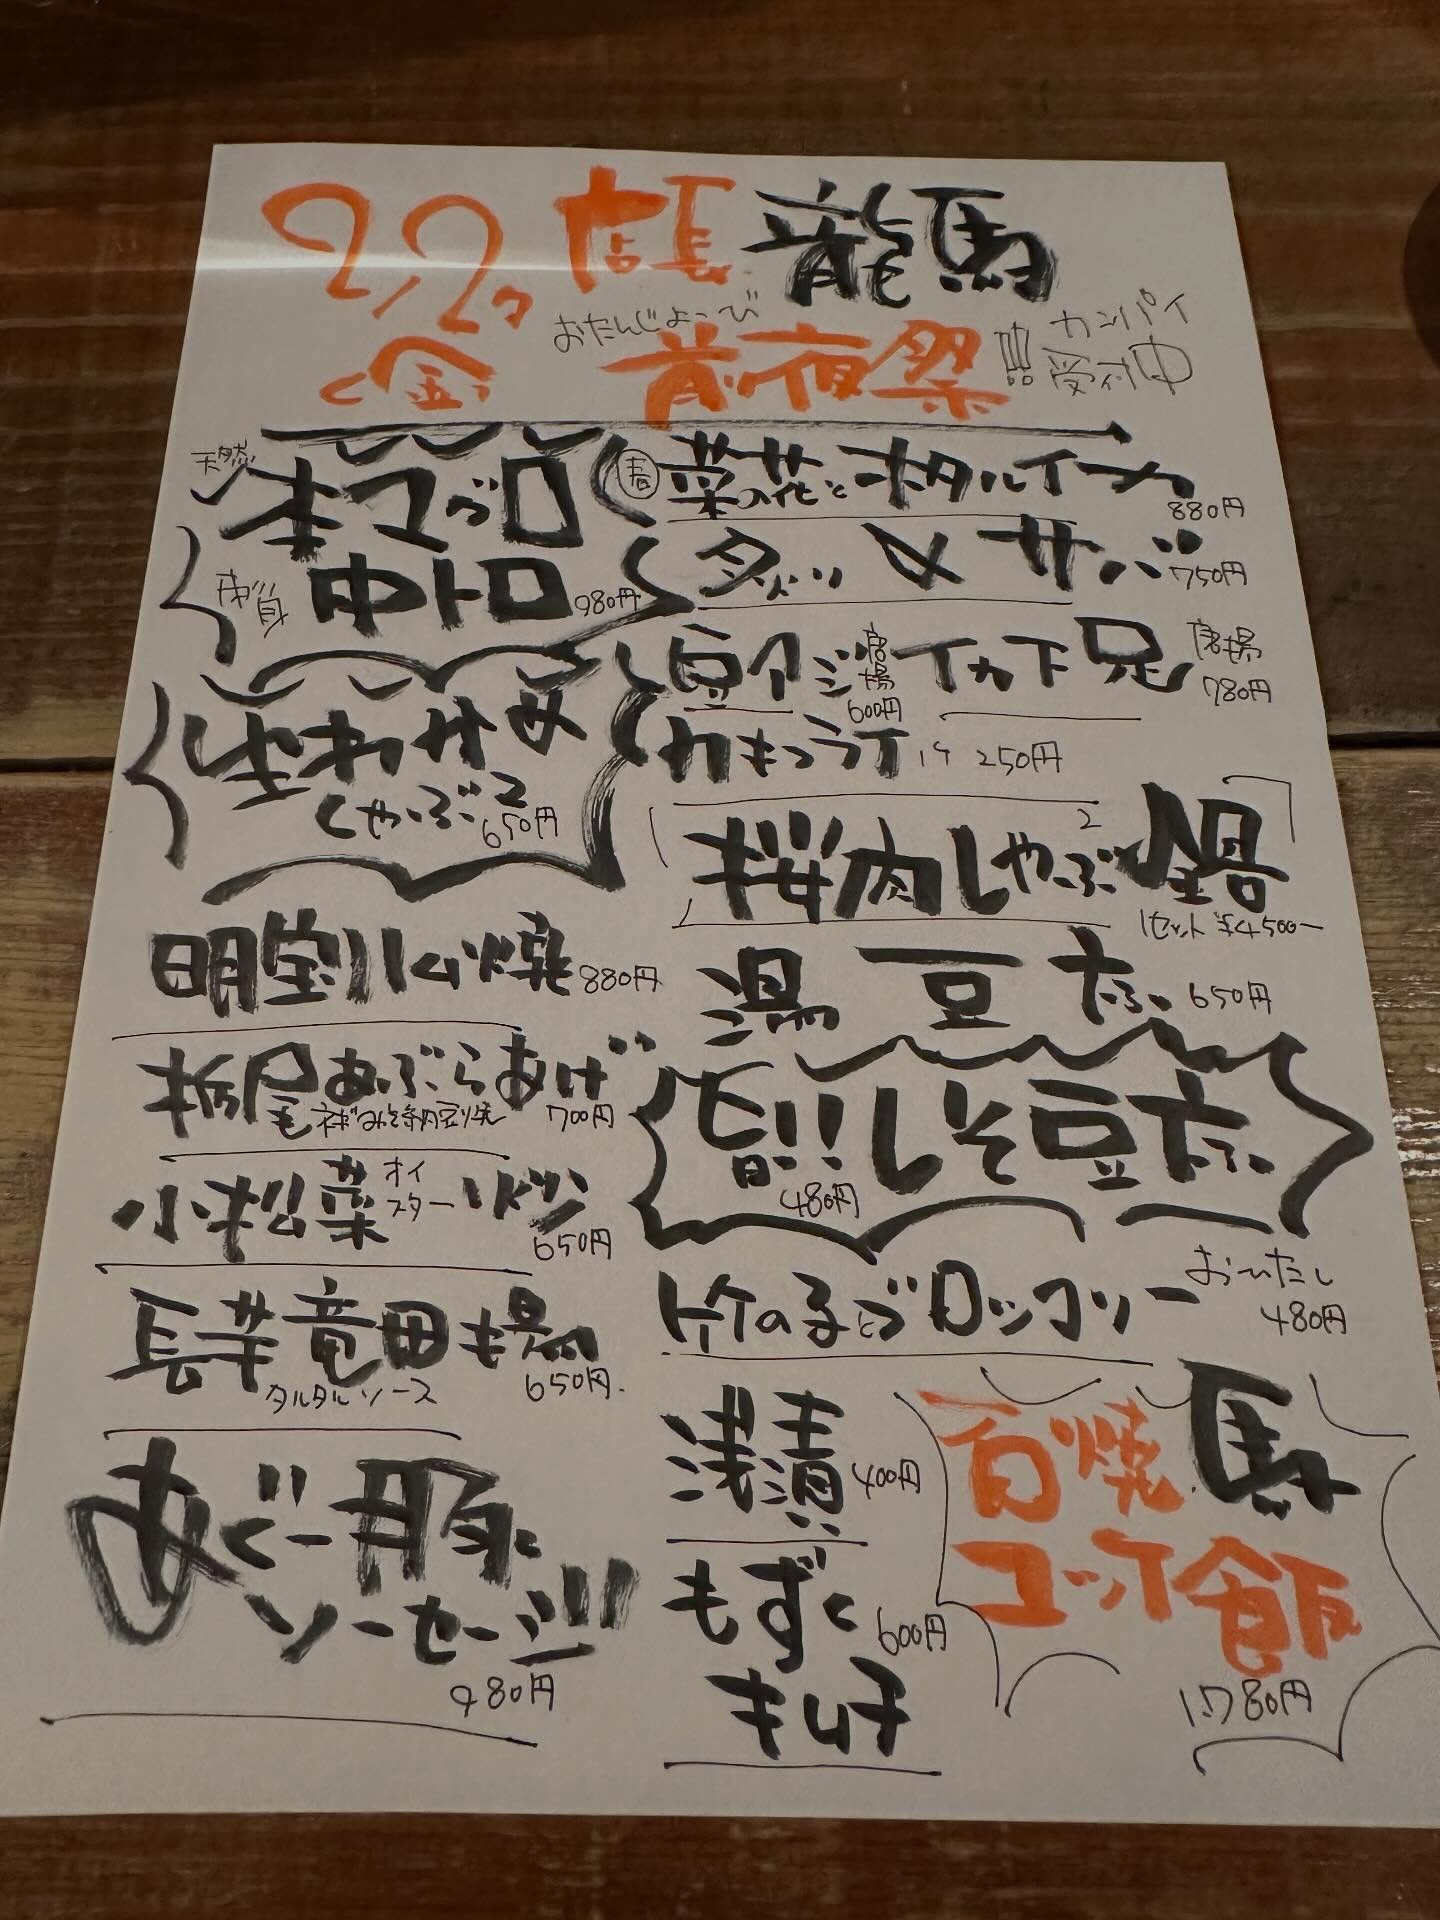 2/27
店長
龍馬
(金)
おたんじょーび
前夜祭
!!!
カンパイ
受付中
天然
本マグロ
中トロ
980円
生わかめ
しゃぶ2
650円
明宝ハム焼
880円
栃尾あぶらあげ
ネギみそ納豆焼
700円
小松菜
オイスター
650円
長芋竜田揚
タルタルソース
650円
あぐー豚
ソーセージ
980円
春
菜の花とホタルイカ
880円
メサバ
750円
豆アジ唐揚
600円
イカ下足
唐揚
780円
カキフライ
1ケ 250円
桜肉しゃぶ2鍋
1セット ¥4500-
湯豆ふ
650円
旨!!しそ豆ふ
480円
竹の子とブロッコリー
おひたし
480円
浅漬
400円
もずく
600円
キムチ
石焼 馬
ユッケ飯
1780円